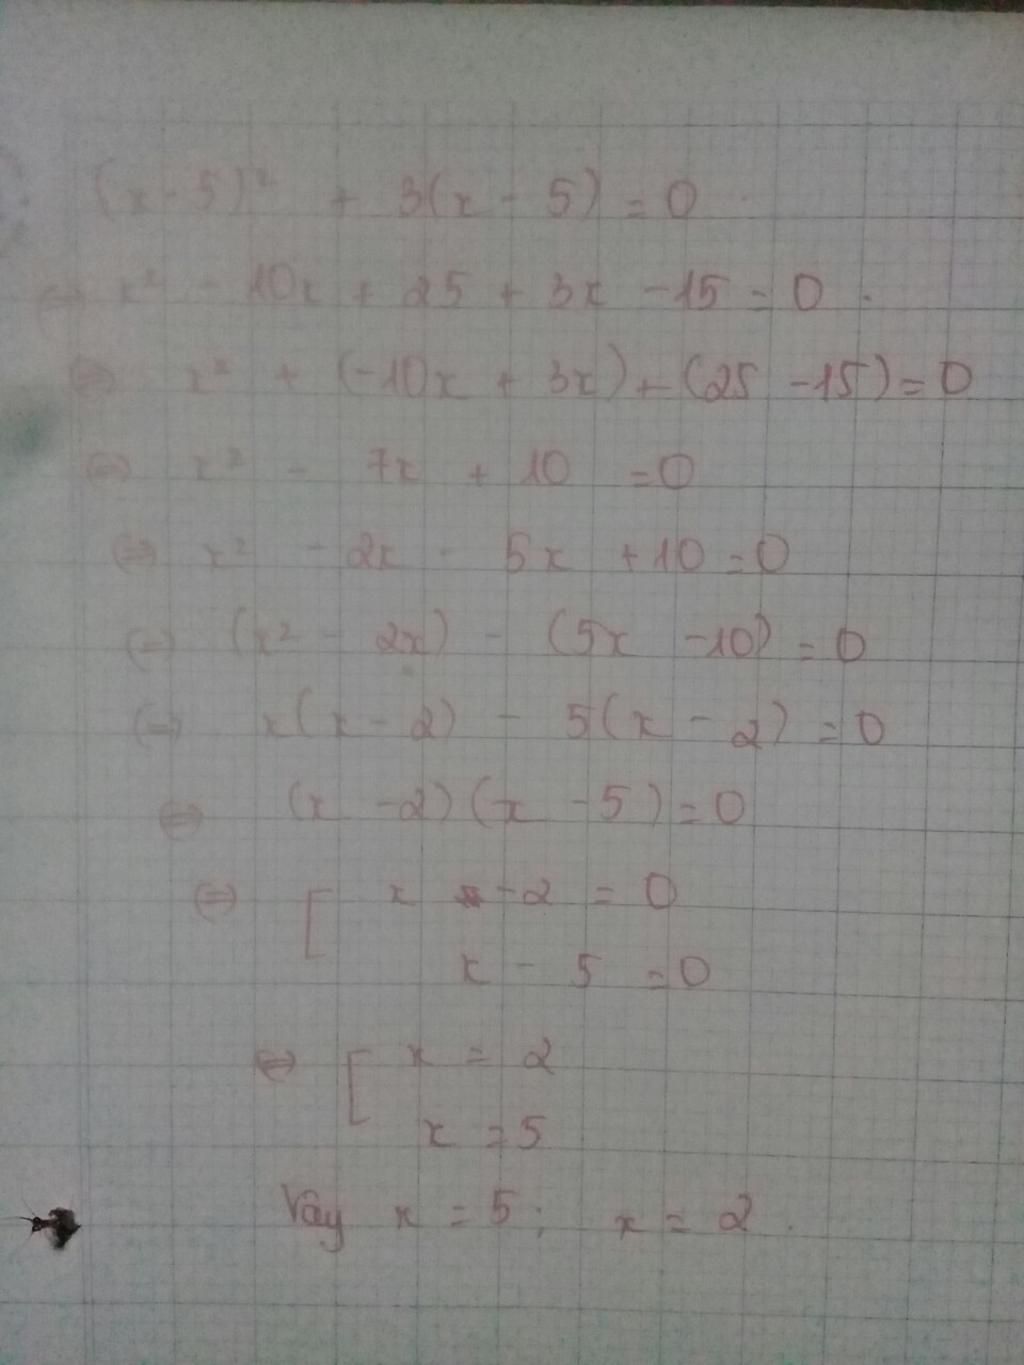 (x - 5)² + 3(x - 5) = 0
⇔ x² - 10x + 25 + 3x - 15 = 0.
⇔ x² + (-10x + 3x) + (25 - 15) = 0
⇔ x² - 7x + 10 = 0
⇔ x² - 2x - 5x + 10 = 0
⇔ (x² - 2x) - (5x - 10) = 0
⇔ x(x - 2) - 5(x - 2) = 0
⇔ (x - 2)(x - 5) = 0
⇔ [ x - 2 = 0
x - 5 = 0
⇔ [ x = 2
x = 5
Vậy x = 5; x = 2.